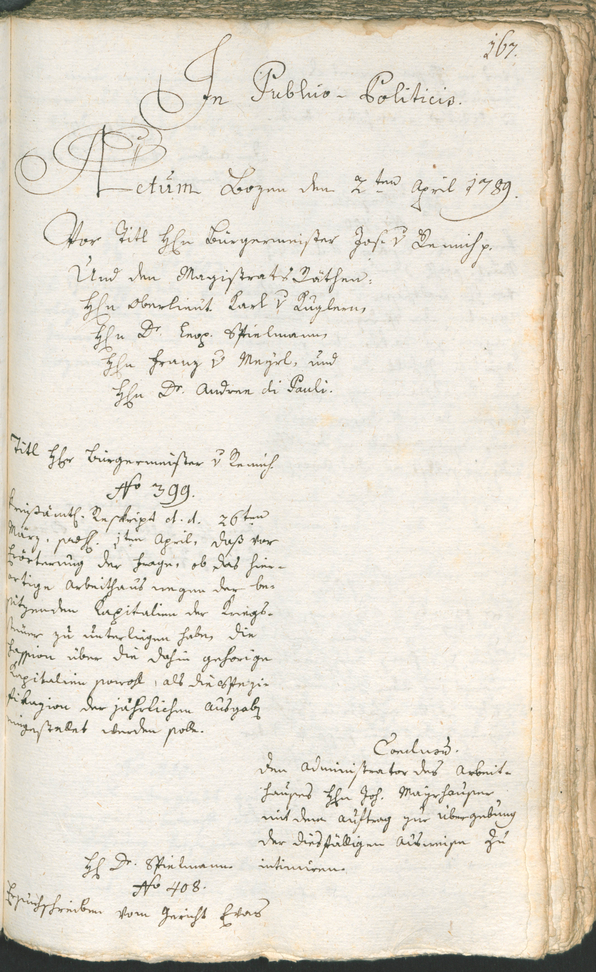 167.
In Publico-Politicis.
Actum Bozen den 2ten April 1789.
Vor Titl Hhn Bürgermeister Jos. v Remich p.
Und den Magistrats Räthen:
Hhn Oberlieut Karl v Kuglern,
Hhn Dr. Leop. Spielmann,
Hhn Franz v Meyrl, und
Hhn Dr. Andree di Pauli.
Titl Hhr Bürgermeister v Remich
No 399.
Kreisämtl. Reskript d. d. 26ten
März, 1ten April, daß vor
Erörterung der Frage, ob das hier-
ortige Arbeithaus wegen der be-
sitzenden Kapitalien der Kriegs-
steuer zu unterliegen habe, die
Fassion über die dahin gehörige
Kapitalien sowohl, als die Spezi-
fikazion der jährlichen Ausgab
eingestellet werden solle.
Conclus.
Den Administrator des Arbeit-
hauses Hhn Joh. Mayrhauser
mit dem Auftrag zur Übergebung
der diesfälligen Ausweise zu
intimiren.
Hh Dr. Spielmann
No 408.
Ersuchschreiben vom Gericht Evas